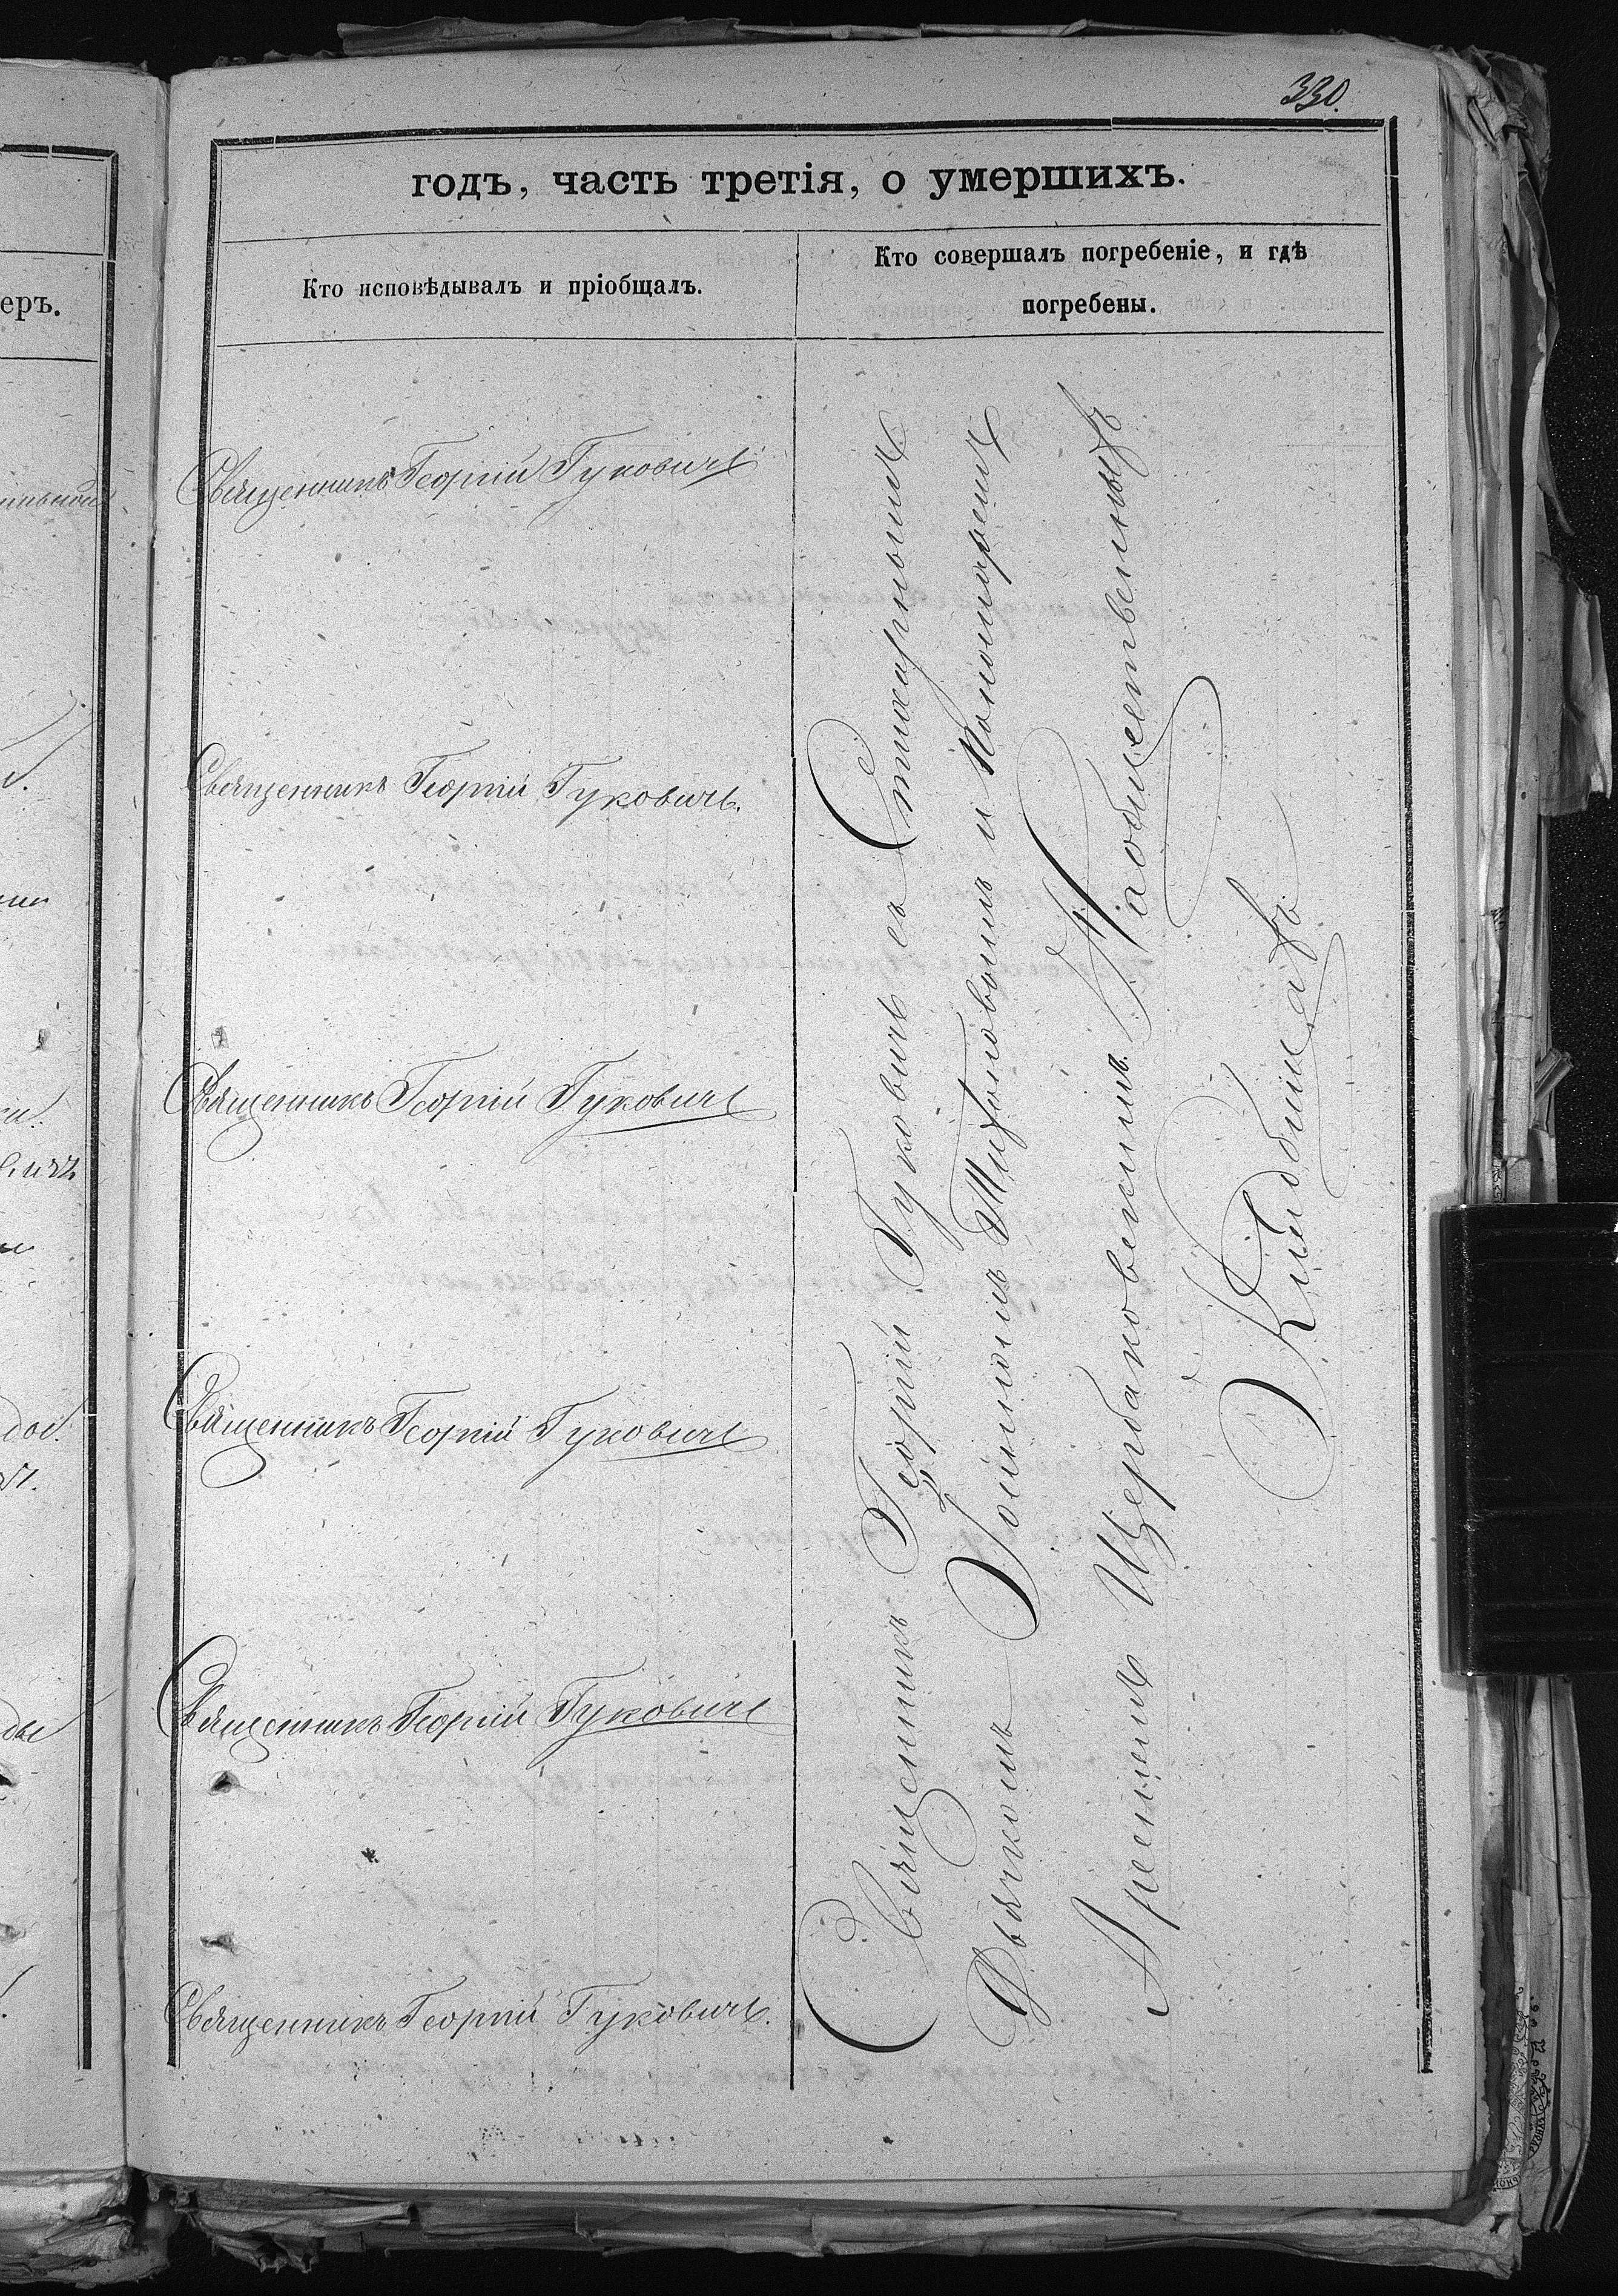 330.
годъ, часть третія, о умершихъ.
еръ.
Кто исповѣдывалъ и пріобщалъ.
Кто совершалъ погребеніе, и гдѣ
погребены.
Священникъ Георгій Гуковичъ
Священникъ Георгій Гуковичъ.
Священникъ Георгій Гуковичъ
Священникъ Георгій Гуковичъ
Священникъ Георгій Гуковичъ
Священникъ Георгій Гуковичъ.
Священникъ Георгій Гуковичъ съ Стихарнымъ
Дьячкомъ Іоанномъ и Пономаремъ
Арсеніемъ Щербаковскимъ
Кладбищахъ